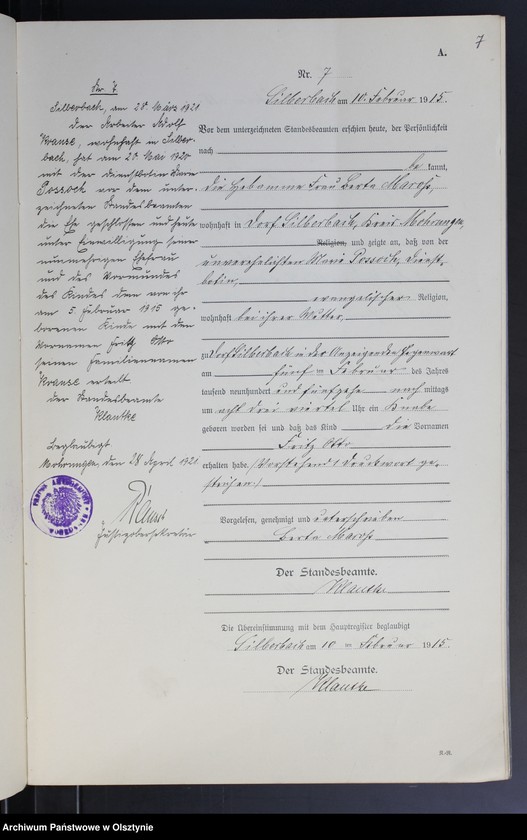 7
A.
Nr. 7
Silberbach am 10. Februar 1915.
Vor dem unterzeichneten Standesbeamten erschien heute, der Persönlichkeit
nach
be kannt,
die Hebamme Frau Berta Marohs,
wohnhaft in Dorf Silberbach, Kreis Mohrungen,
Religion, und zeigte an, daß von der
unverehelichten Marie Possock, Dienst-
botin,
evangelischer Religion,
wohnhaft bei ihrer Mutter
zu Dorf Silberbach in der Anzeigenden Gegenwart
am fünften Februar des Jahres
tausend neunhundert und fünfzehn nach mittags
um acht drei viertel Uhr ein Knabe
geboren worden sei und daß das Kind die Vornamen
Fritz Otto
erhalten habe. (Vorstehend 1 Druckwort ge-
strichen.)
Vorgelesen, genehmigt und unterschrieben
Berta Marohs
Der Standesbeamte.
Klautke
Die Übereinstimmung mit dem Hauptregister beglaubigt
Silberbach am 10 ten Februar 1915.
Der Standesbeamte.
Klautke
Nr. 7
Silberbach, am 28 März 1921
Der Arbeiter Adolf
Krause, wohnhaft in Silber-
bach, hat am 28 Mai 1920
mit der Dienstbotin Marie
Possock vor dem unter-
zeichneten Standesbeamten
die Ehe geschlossen und heute
unter Einwilligung seiner
nunmehrigen Ehefrau
und des Vormundes
des Kindes dem von ihr
am 5 Februar 1915 ge-
borenen Kinde mit den
Vornamen Fritz Otto
seinen Familiennamen
Krause erteilt
der Standesbeamte
Klautke
Beglaubigt
Mohrungen, den 28 April 1921
Justizobersekretär
Archiwum Państwowe w Olsztynie